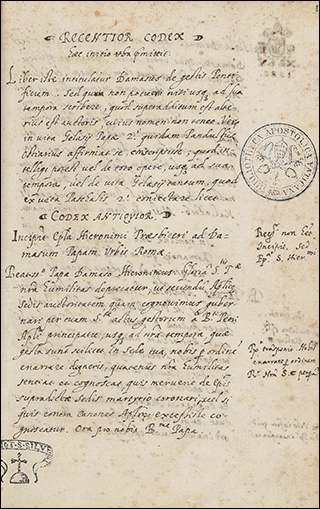 RECENTIOR CODEX
Haec initio verba praemittit.
Liber iste intitulatur Damasus de gestis Ponti-
ficum. Sed quia non potuit nisi usq; ad sua
tempora scribere, quod superadditum est alte-
rius est auctoris, cuius nomen non teneo. Nisi
in vita Gelasij Papae 2.i quidam Pandulfus
Ostiarius affirmat se conscripsisse, quod in-
telligi potest vel de toto opere, usq; ad sua
tempora, vel de vita Gelasij tantum, quod
ex vita Paschalis 2.i coniectare licet.
CODEX ANTIQVIOR.
Incipit Epla Hieronimi Praesbiteri ad Da-
masum Papam Urbis Romae.
Beatiss.o Papae Damaso Hieronimus. Gloria S.tis Tuae
nra humilitas depraecatur, ut secundum Aplicae
Sedis auctoritatem quam cognovimus guber-
nari per tuam S.tem actus gestorum à B.mi Petri
Apli principatu, usq; ad nra tempora, quae
gesta sunt scilicet in sede tua, nobis p ordine
enarrare digneris, quatenus nra humilitas
sentiat et cognoscat quis meruerit de Epis
supradictae sedis martyrio coronari, vel si
quis contra Canones Aplor. excessisse co-
gnoscatur. Ora pro nobis B.me Papa.
Incipit. Sed
BIBLIOTHECA APOSTOLICA VATICANA